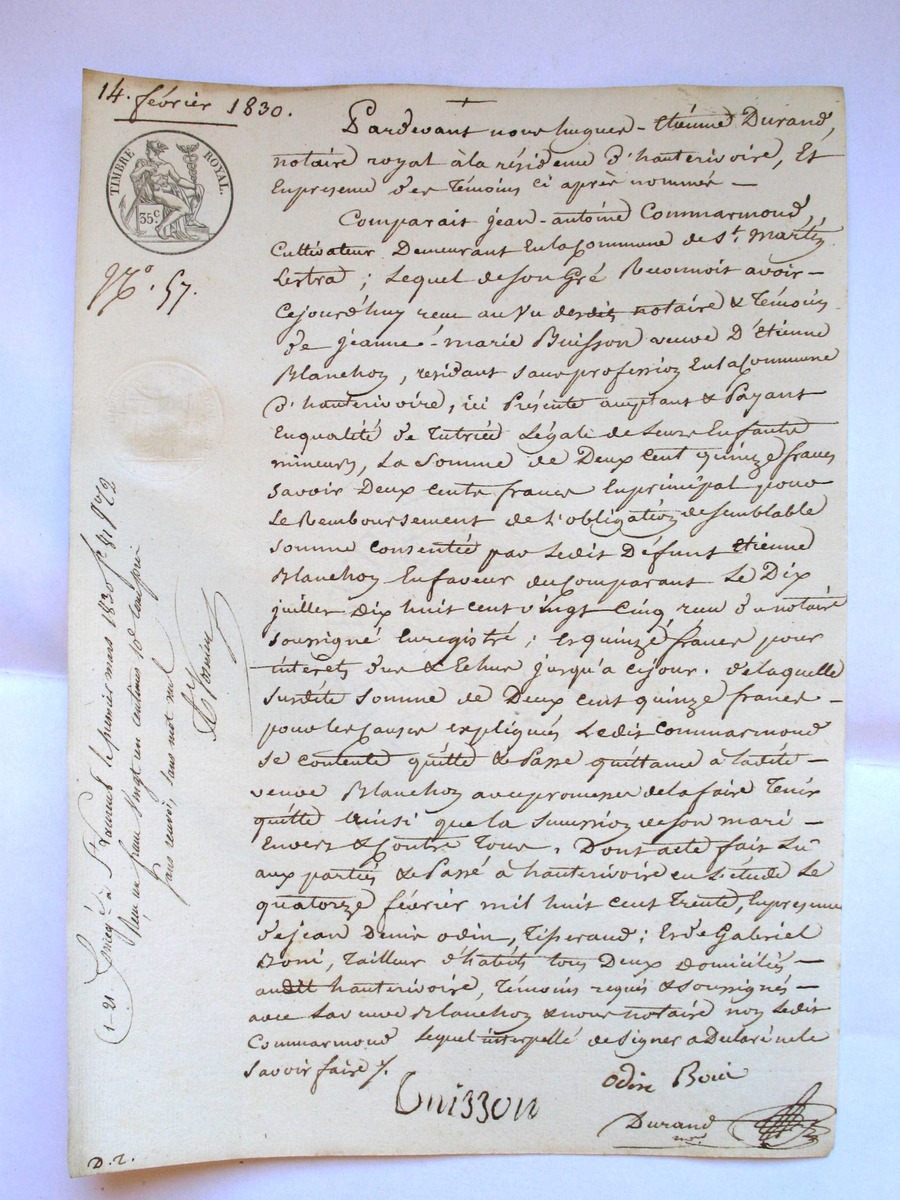 14. février 1830.
TIMBRE ROYAL.
35 c.
N.o 57.
Pardevant nous hugues-Etienne Durand,
notaire royal à la résidence d'hauterivoire, Et
Enpresence des Témoins ci après nommés —
Comparait jean-antoine Commarmond,
Cultivateur Demeurant Enlacommune de St. Martin
Lestra ; Lequel de son Gré Reconnoit avoir —
Cejourd'huy recu au Vu desdits notaire & Témoins
de jeanne-marie Buisson veuve D'Etienne
Blanchon, residant sans profession Enlacommune
d'hauterivoire, ici Présente acceptant & Payant
Enqualité de Tutrice Légale de Leurs Enfants
mineurs, La Somme de Deux cent quinze francs
savoir Deux cents francs Enprincipal pour
Le Remboursement de L'obligation desemblable
somme consentie par Ledit Défunt Etienne
Blanchon Enfaveur ducomparant Le Dix
juillet Dix huit cent vingt Cinq recu du notaire
soussigné Enregistré ; Es quinze francs pour
interets dus & Echus jusqu'a cejour. de laquelle
susdite somme de Deux cent quinze francs —
pour les causes expliqués Ledit Commarmond
se contente quitte & Passe quittance à ladite —
veuve Blanchon avec promesse de la faire Tenir
quitte Ainsi que la Succession de son mari —
Envers & Contre Tous. Dont acte fait Lu
aux parties & Passé à hauterivoire en L'étude Le
quatorze février mil huit cent Trente, Enpresence
de jean Denis odin, Tisserand ; Es de Gabriel
Boni, Tailleur d'habits tous Deux domiciliés —
audit hauterivoire, Témoins requis & soussignés —
avec La veuve Blanchon & nous notaire non Ledit
Commarmond Lequel interpellé de signer a Déclaré ne le
savoir faire /.
Buisson
odin Boni
Durand
not.
D. 2.
Enregé à St Laurent le premier mars 1830 fo 41 Ro C 2
Reçu un franc vingt un centimes 10e compris
sans renvoi, sans mot nul
1-21